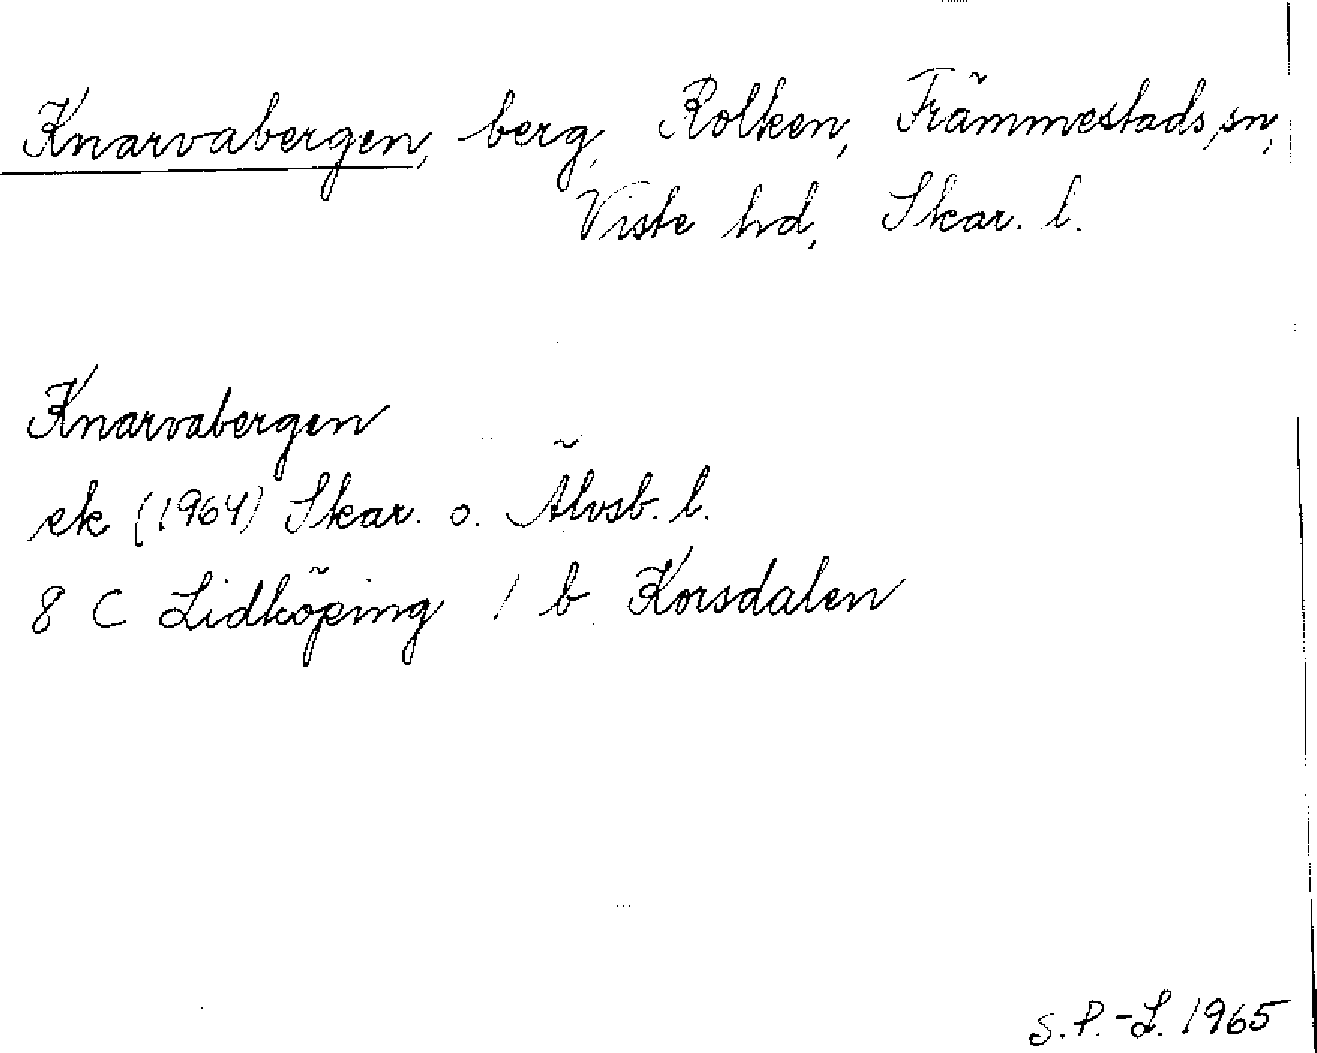 Knarvabergen, berg, Rolken, Främmestads sn,
Viste hd, Skar. l.
Knarvabergen
ek (1964) Skar. o. Älvsb. l.
8 C Lidköping 1 b Korsdalen
S.P.-L. 1965